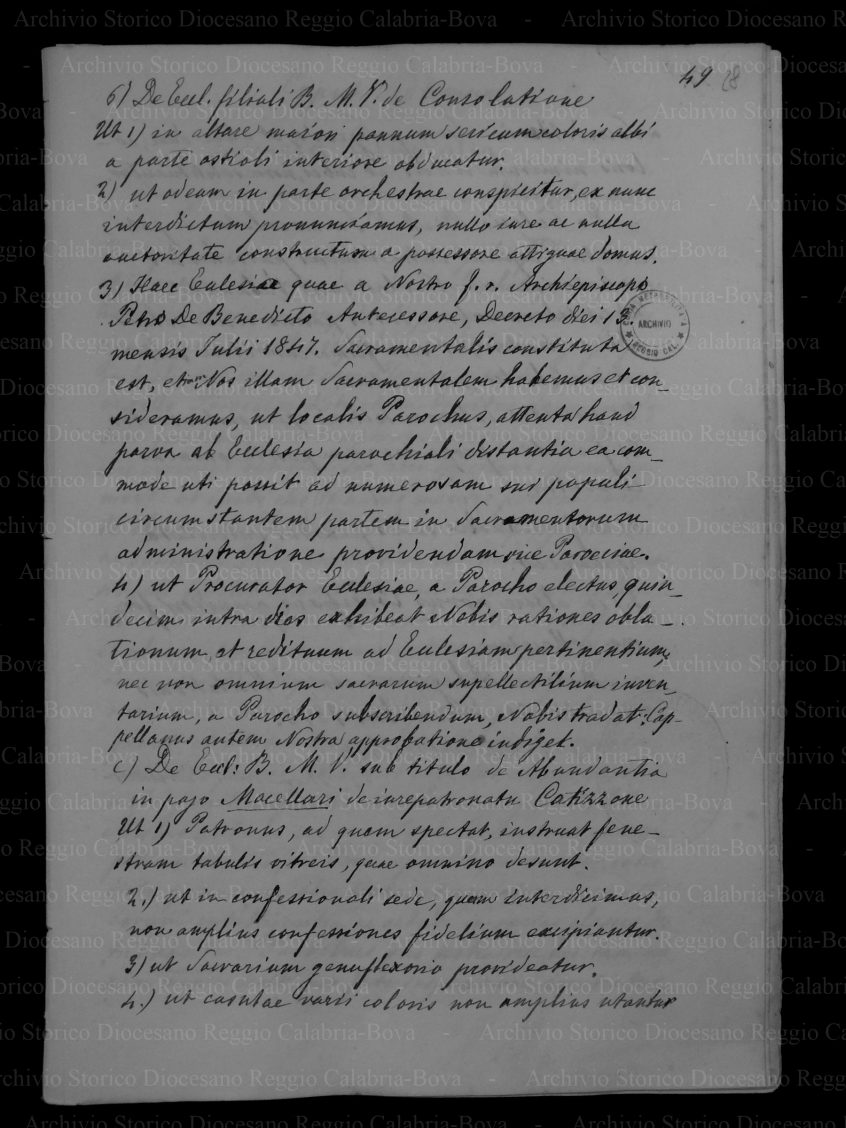 49 68
b) De Eccl. filiali B. M. V. de Consolatione
Ut 1) in altare maiori pannum sericum coloris albi
a parte ostioli interiore obducatur.
2) ut odeum in parte orchestrae conspicitur, ex nunc
interdictum pronunciamus, nullo iure ac nulla
auctoritate constructum a possessore attiguae domus.
3) Haec Eulesiae quae a Nostro f. r. Archiepiscopo
Petro De Benedicto Antecessore, Decreto diei 13.
mensis Iulii 1847. Sacramentalis constituta
est, et Nos illam Sacramentalem habemus et con_
sideramus, ut localis Parochus, attenta haud
parva ab Ecclesia parochiali distantia ea com_
mode uti possit ad numerosam sui populi
circumstantem partem in Sacramentorum
administratione providendam vice Paroeciae.
4) ut Procurator Ecclesiae, a Parocho electus, quin_
decim intra dies exhibeat Nobis rationes obla_
tionum, et redituum ad Ecclesiam pertinentium,
nec non omnium sacrarum supellectilium inven_
tarium, a Parocho subscribendum, Nobis tradat. Cap_
pellanus autem Nostra approbatione indiget.
c) De Eccl: B. M. V. sub titulo de Abundantia
in pago Macellari de iurepatronatu Catizzone
Ut 1) Patronus, ad quem spectat, instruat fene_
stram tabulis vitreis, quae omnino desunt.
2.) ut in confessionali sede, quam interdicimus,
non amplius confessiones fidelium excipiantur.
3) ut Sacrarium genuflexorio provideatur.
4.) ut casulae varii coloris non amplius utantur
ARCHIVIO
Archivio Storico Diocesano Reggio Calabria-Bova